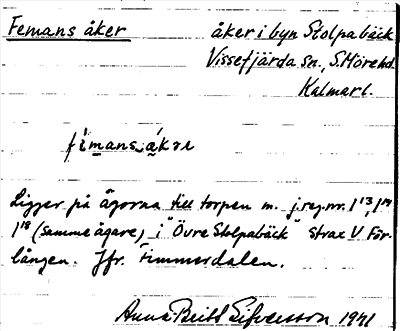 Femans åker
åker i byn Stolpabäck
Vissefjärda sn., S. Möre hd.
Kalmar l.
fi̍mans å̀kre
Ligger på ägorna till torpen m. j.reg.nr. 1¹³, 1¹⁴
1¹⁸ (samme ägare) i "Övre Stolpabäck" strax V För-
lången. Jfr. Fimmerdalen.
Anna-Britt Sifversson 1941